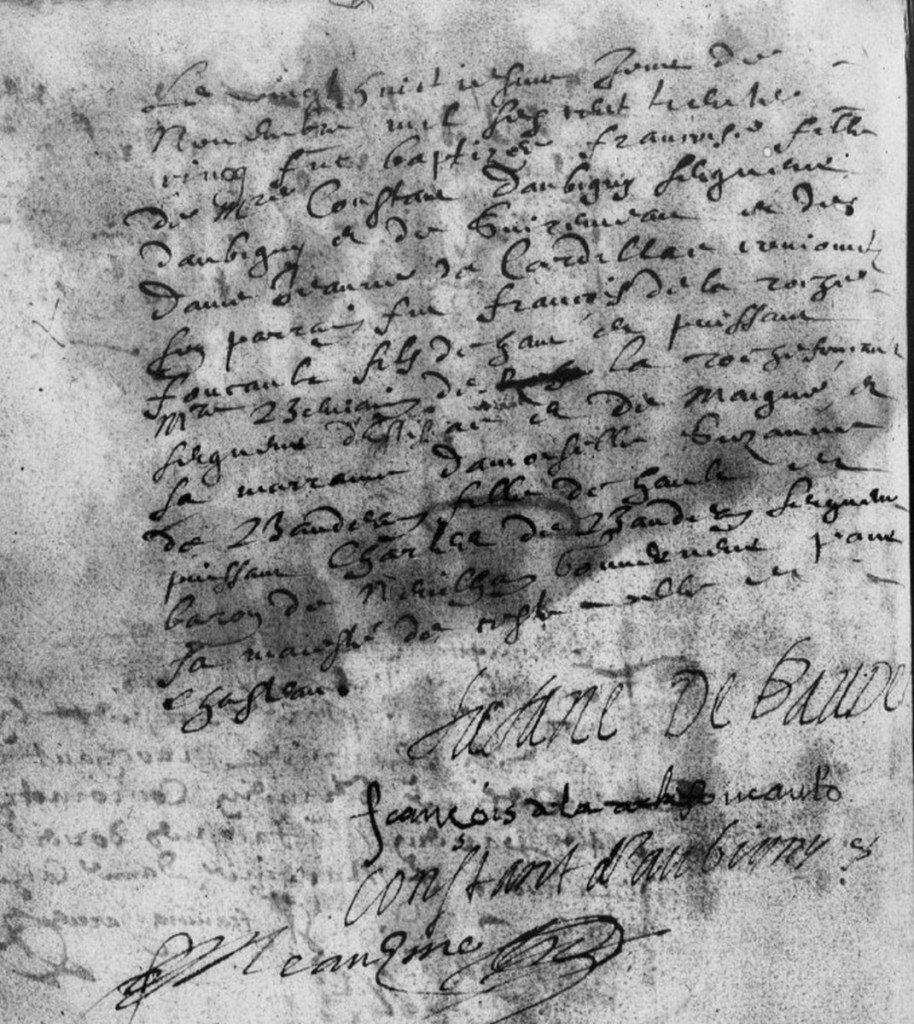 Le vingt huictiesme Jour de
Novembre mil six cent trente
cinq fut baptizée françoise fille
de Mre Constant daubigny seigneur
daubigny et de Surimeau et de
dame Jeanne de Cardillac conjoints
son parrain fut françois de la roche
foucault fils de hault et puissant
Mre Benjamin de la rochefoucault
seigneur d'Estissac et de Maigné et
sa marraine damoiselle Suzanne
de Baudean fille de hault et
puissant Charles de Baudean seigneur
baron de Neuillan gouverneur pour
sa maiesté de ceste ville et
chasteau.
Susane De Baude
françois de la rochefoucauld
Constant d'Aubigny